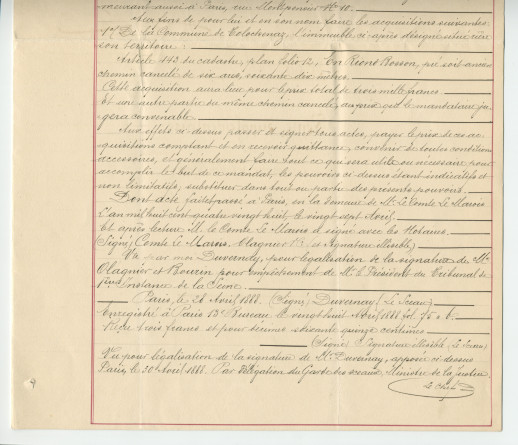 à Paris, rue Montpensier N° 10.
Aux fins de pour lui et en son nom faire les acquisitions suivantes
1° De la Commune de Tolochenaz, l'immeuble ci-après désigné situé rière
son territoire :
Article 442 du cadastre, plan folio 12, En Riond Bosson, pré soit ancien
chemin cancelé de six ares, soixante dix mètres.
Cette acquisition aura lieu pour le prix total de trois mille francs
Et une autre partie du même chemin cancelé, au prix que le mandataire ju-
gera convenable.
Aux effets ci-dessus passer et signer tous actes, payer le prix de ces ac-
quisitions comptant et en recevoir quittance, convenir de toutes conditions
accessoires, et généralement faire tout ce qui sera utile ou nécessaire pour
accomplir le but de ce mandat, les pouvoirs ci-dessus étant indicatifs et
non limitatifs, substituer dans tout ou partie des présents pouvoirs.
Dont acte fait et passé à Paris, en la demeure de Mr. Le Comte Le Marois
L'an mil huit cent quatre vingt huit, le vingt sept Avril.
Et après lecture M. le Comte Le Marois a signé avec les Notaires.
(Signé) Comte Le Marois. Olagnier et Signature illisible)
Vu par nous Duvernay, pour légalisation de la signature de Mes
Olagnier et Bourin pour empêchement de Mr. le Président du Tribunal de
1ère Instance de la Seine.
Paris, le 28 Avril 1888. (Signé) Duvernay. (Le Sceau)
Enregistré à Paris Bureau le vingt huit Avril 1888 fol. 75
Reçu trois francs et pour décimes soixante quinze centimes
(Signé) Signature illisible. (Le Sceau)
Vu pour légalisation de la signature de Mr. Duvernay, apposée ci-dessus
Paris, le 30 Avril 1888. Par Délégation du Garde des sceaux Ministre de la Justice
Le chef